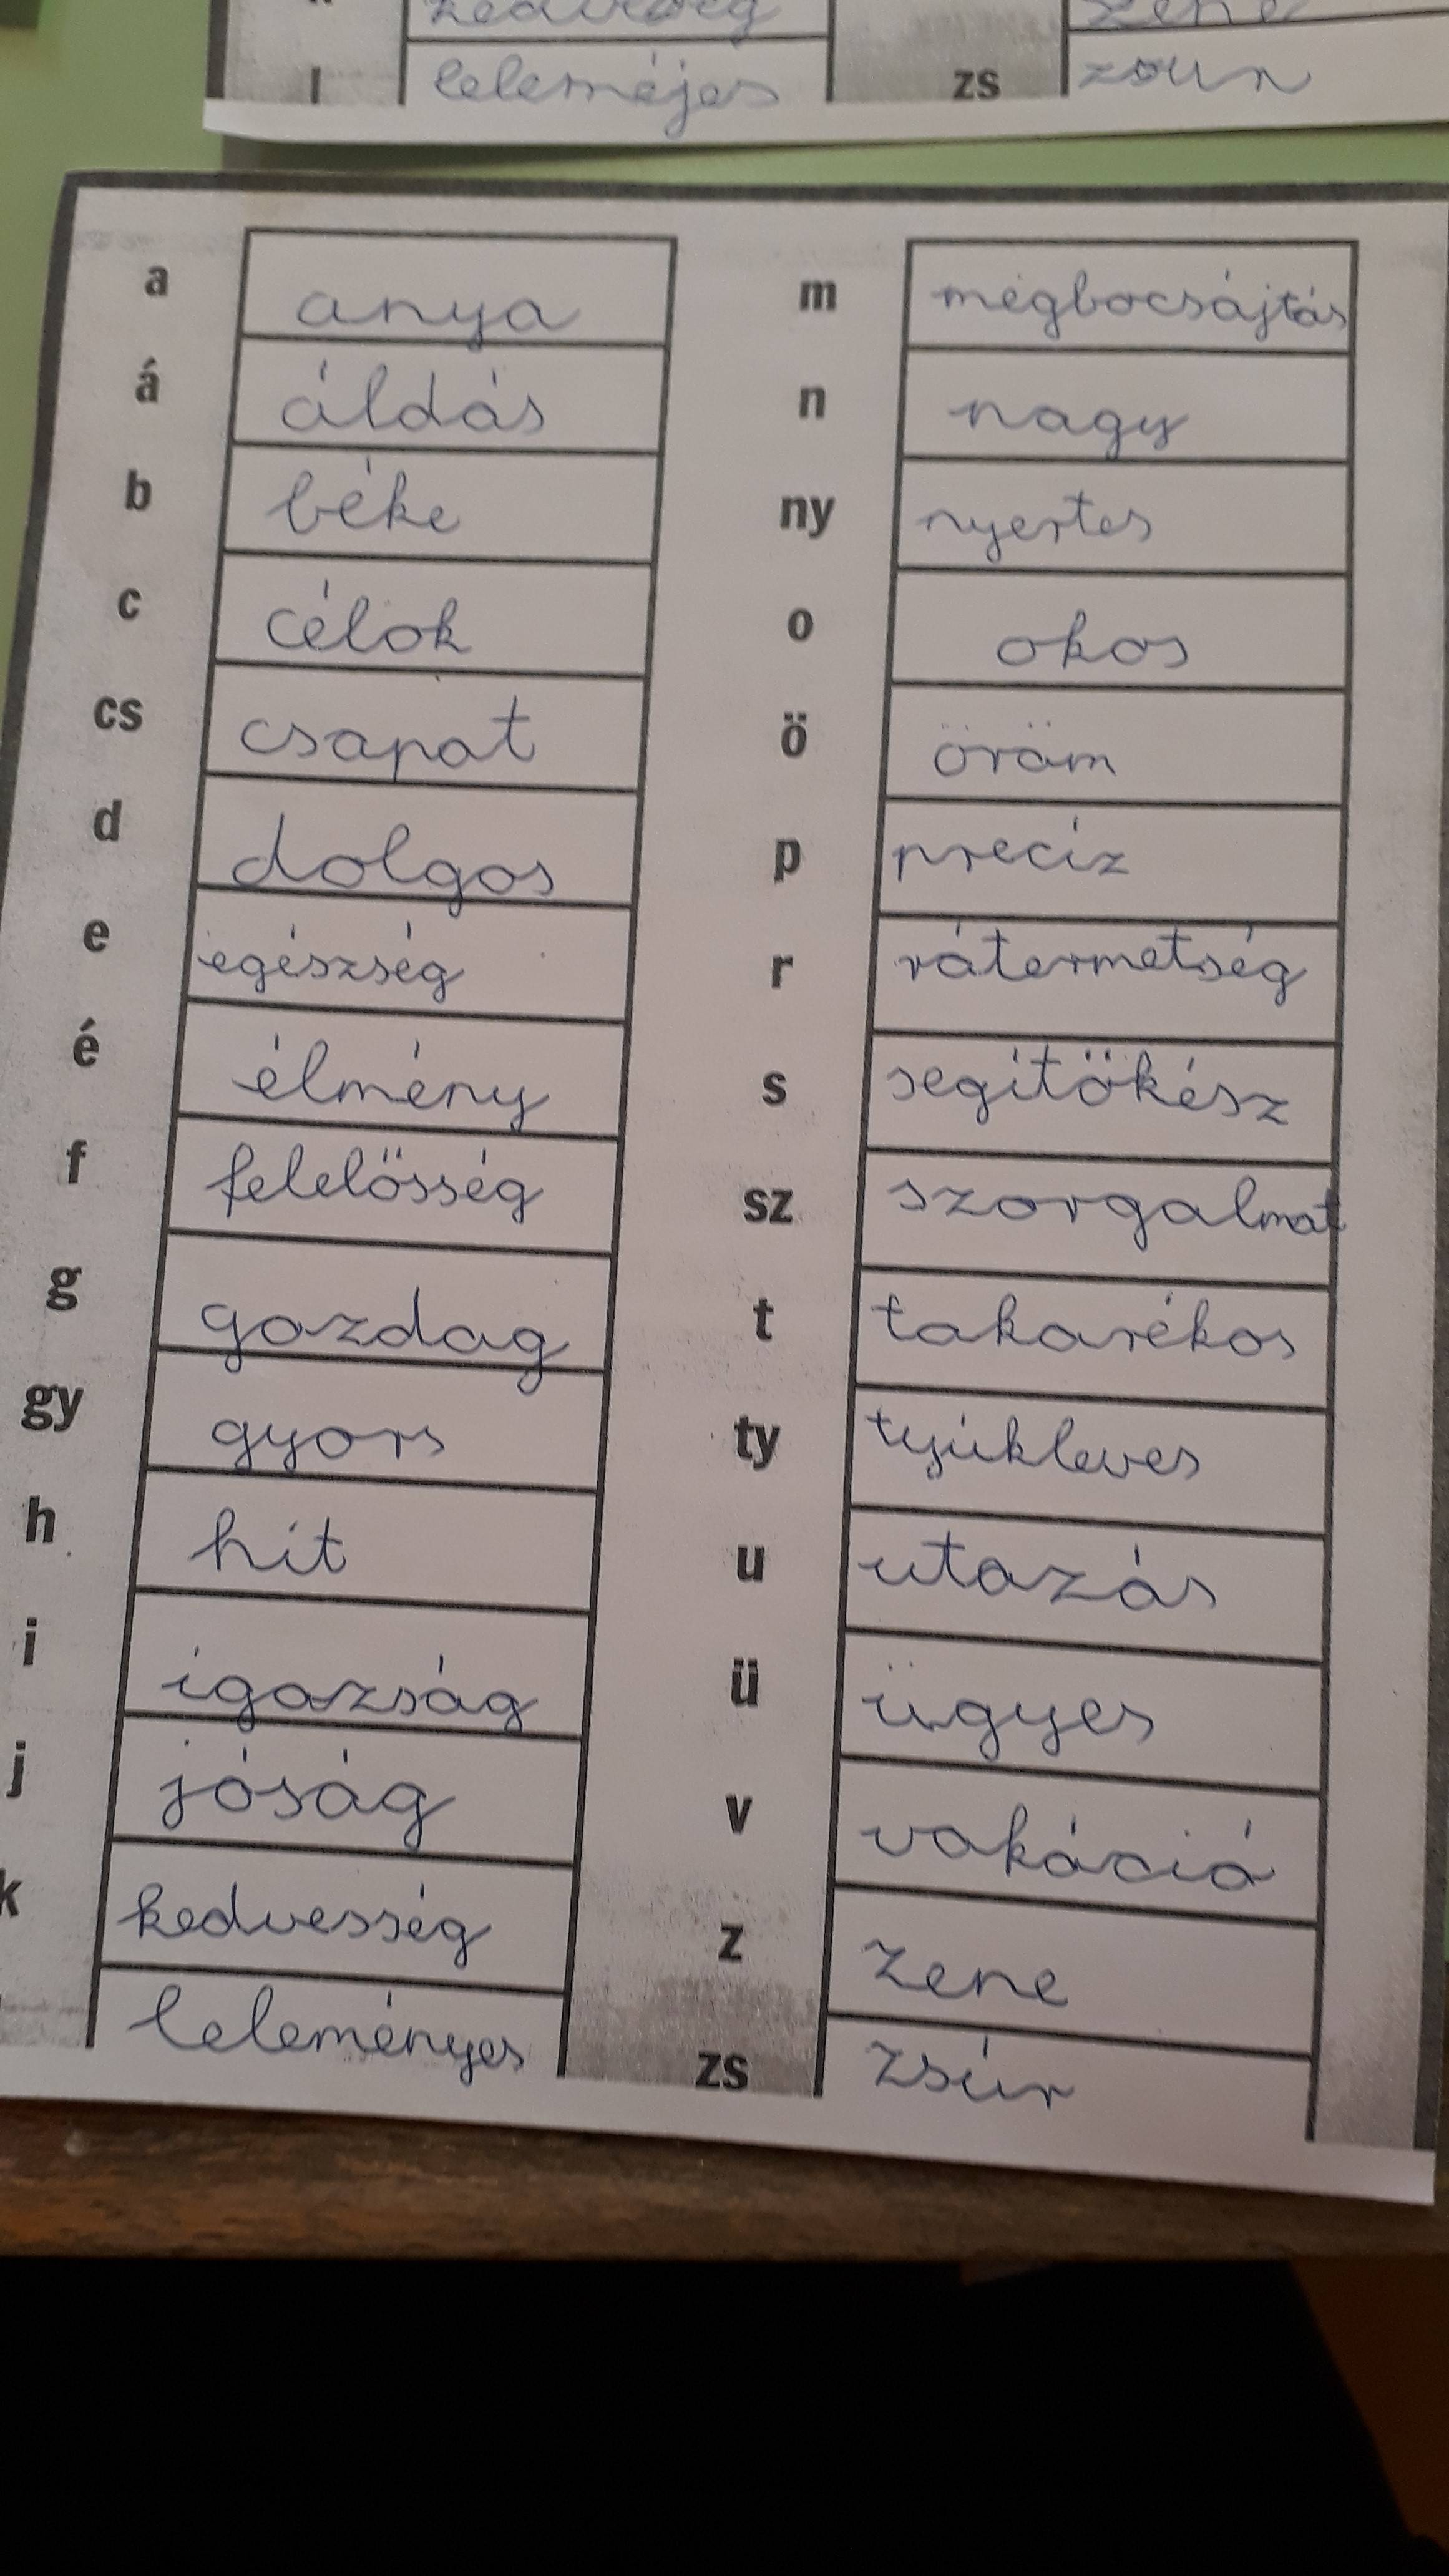 l leleméjes zs
a anya m megbocsájtás
á áldás n nagy
b béke ny nyertes
c célok o okos
cs csapat ö öröm
d dolgos p precíz
e egészség r rátermetség
é élmény s segítökész
f felelösség sz szorgalmat
g gazdag t takarékos
gy gyors ty tyúkleves
h hit u utazás
i igazság ü ügyes
j jóság v vakáció
k kedvesség z zene
leleményes zs zsúr